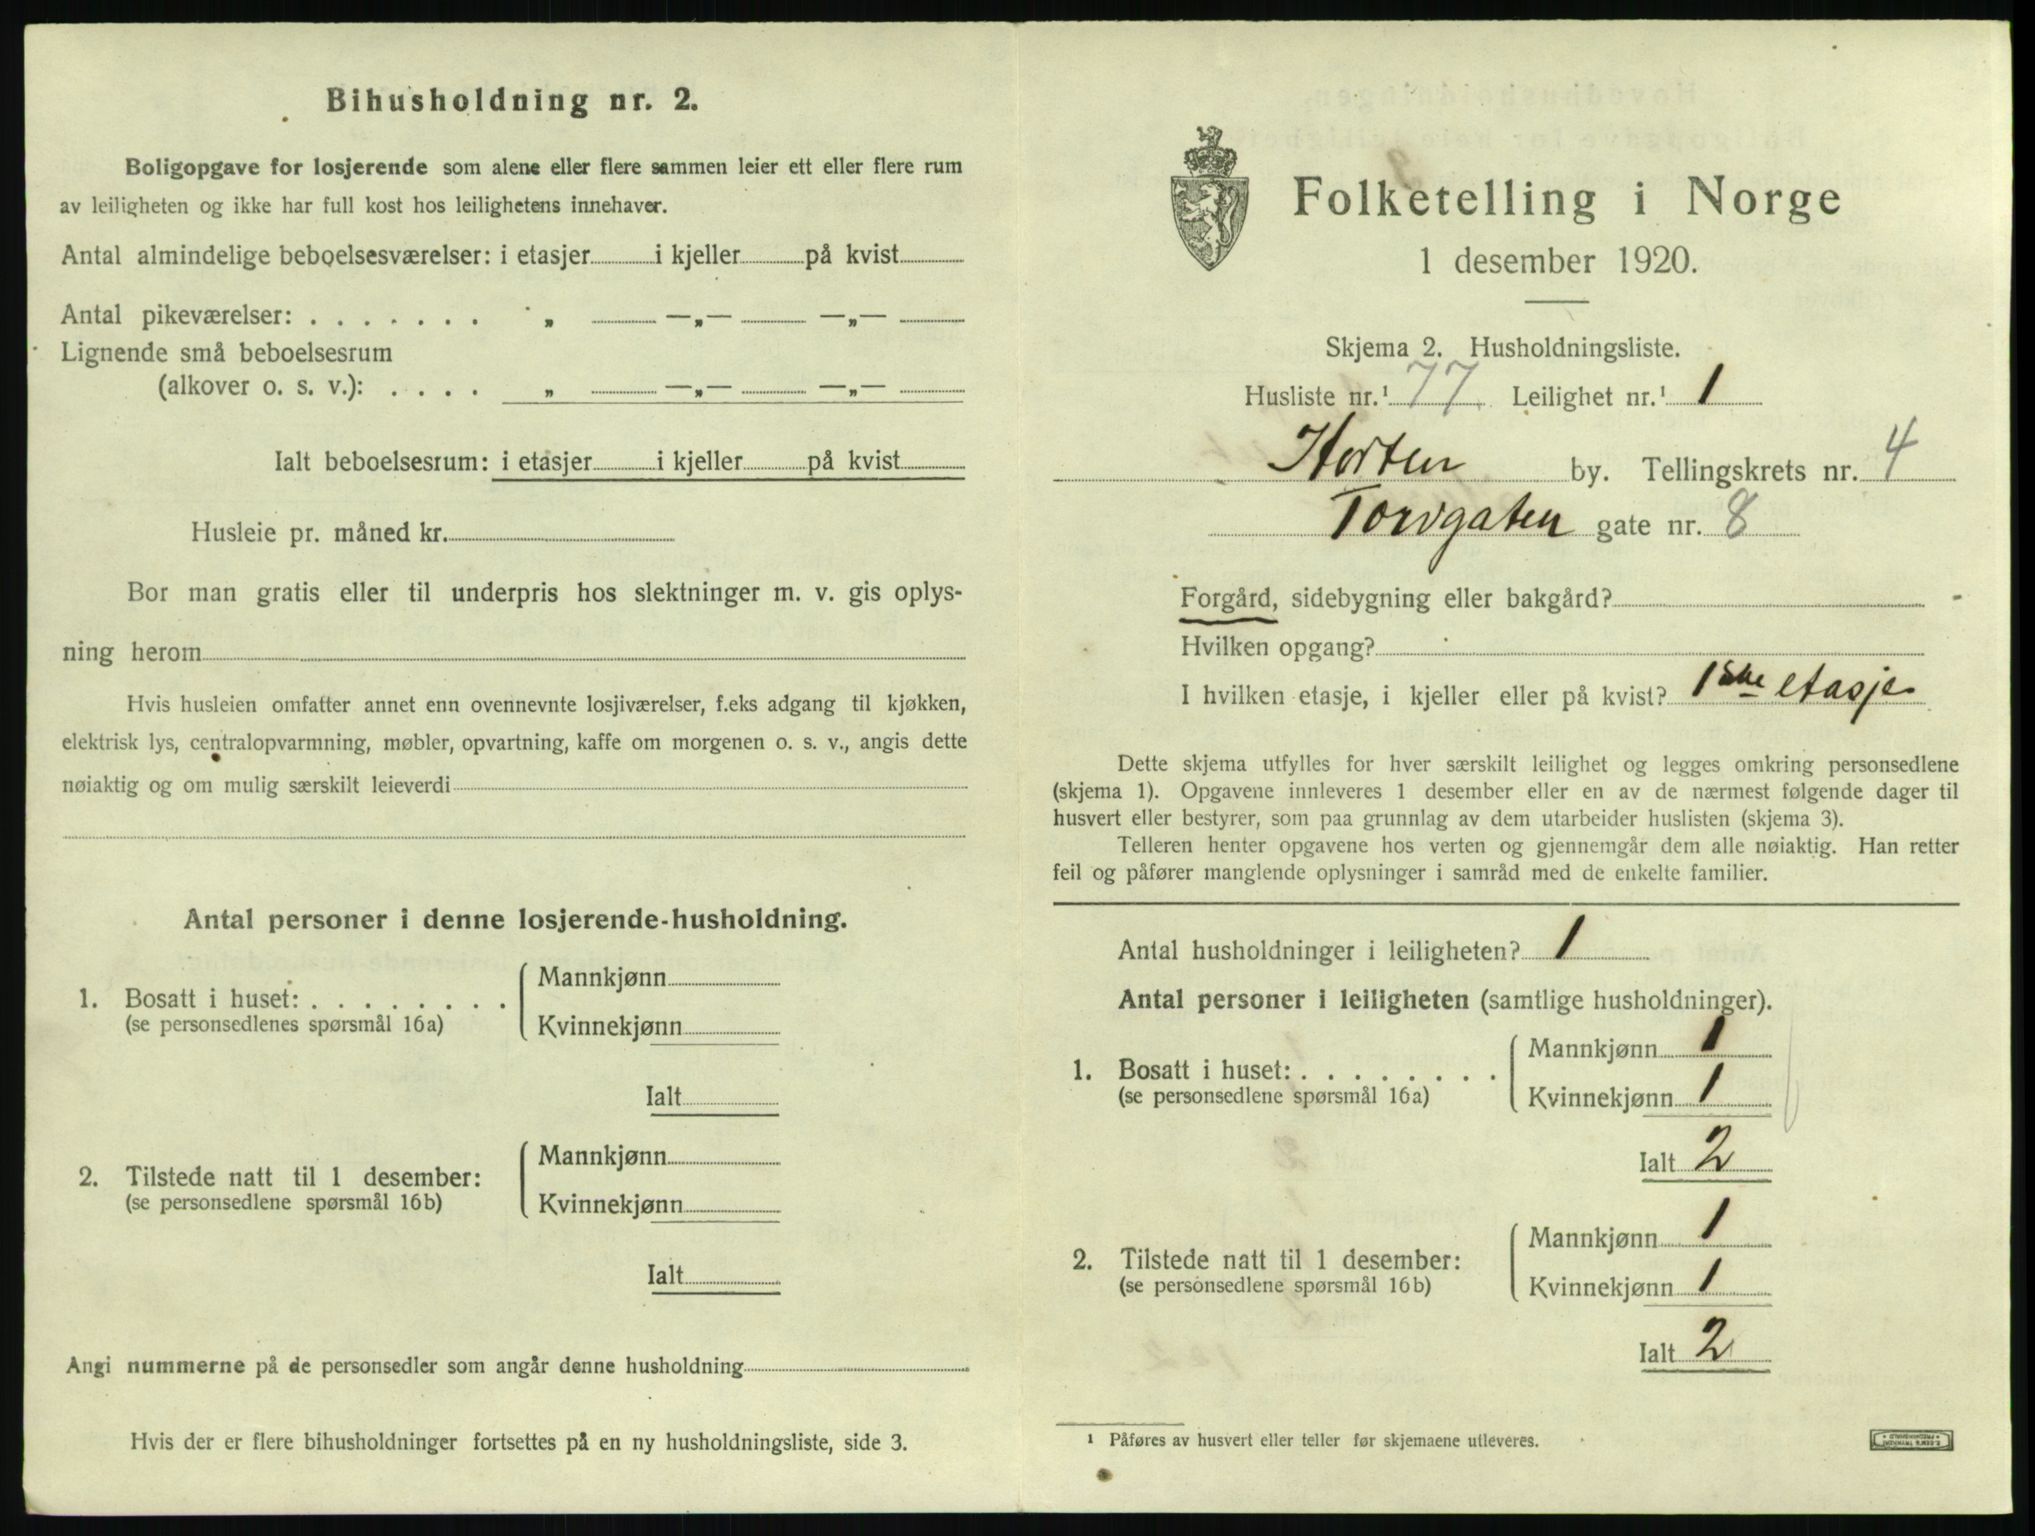 Bihusholdning nr. 2.
Boligopgave for losjerende som alene eller flere sammen leier ett eller flere rum
av leiligheten og ikke har full kost hos leilighetens innehaver.
Antal almindelige beboelsesværelser: i etasjer i kjeller på kvist
Antal pikeværelser: . . . . . . . „ —„— —„—
Lignende små beboelsesrum
(alkover o. s. v.): . . . . „ —„— —„—
Ialt beboelsesrum: i etasjer i kjeller på kvist
Husleie pr. måned kr.
Bor man gratis eller til underpris hos slektninger m. v. gis oplys-
ning herom
Hvis husleien omfatter annet enn ovennevnte losjiværelser, f.eks adgang til kjøkken,
elektrisk lys, centralopvarmning, møbler, opvartning, kaffe om morgenen o. s. v., angis dette
nøiaktig og om mulig særskilt leieverdi
Antal personer i denne losjerende-husholdning.
1. Bosatt i huset: . . . . . . . .
(se personsedlenes spørsmål 16a)
Mannkjønn
Kvinnekjønn
Ialt
2. Tilstede natt til 1 desember:
(se personsedlene spørsmål 16b)
Mannkjønn
Kvinnekjønn
Ialt
Angi nummerne på de personsedler som angår denne husholdning
Hvis der er flere bihusholdninger fortsettes på en ny husholdningsliste, side 3.
Folketelling i Norge
1 desember 1920.
Skjema 2. Husholdningsliste.
Husliste nr.¹ 77 Leilighet nr.¹ 1
Horten by. Tellingskrets nr. 4
Torvgaten gate nr. 8
Forgård, sidebygning eller bakgård?
Hvilken opgang?
I hvilken etasje, i kjeller eller på kvist? 1ste etasje
Dette skjema utfylles for hver særskilt leilighet og legges omkring personsedlene
(skjema 1). Opgavene innleveres 1 desember eller en av de nærmest følgende dager til
husvert eller bestyrer, som paa grunnlag av dem utarbeider huslisten (skjema 3).
Telleren henter opgavene hos verten og gjennemgår dem alle nøiaktig. Han retter
feil og påfører manglende oplysninger i samråd med de enkelte familier.
Antal husholdninger i leiligheten? 1
Antal personer i leiligheten (samtlige husholdninger).
1. Bosatt i huset: . . . . . . . .
(se personsedlene spørsmål 16a)
Mannkjønn 1
Kvinnekjønn 1
Ialt 2
2. Tilstede natt til 1 desember:
(se personsedlene spørsmål 16b)
Mannkjønn 1
Kvinnekjønn 1
Ialt 2
¹ Påføres av husvert eller teller før skjemaene utleveres.